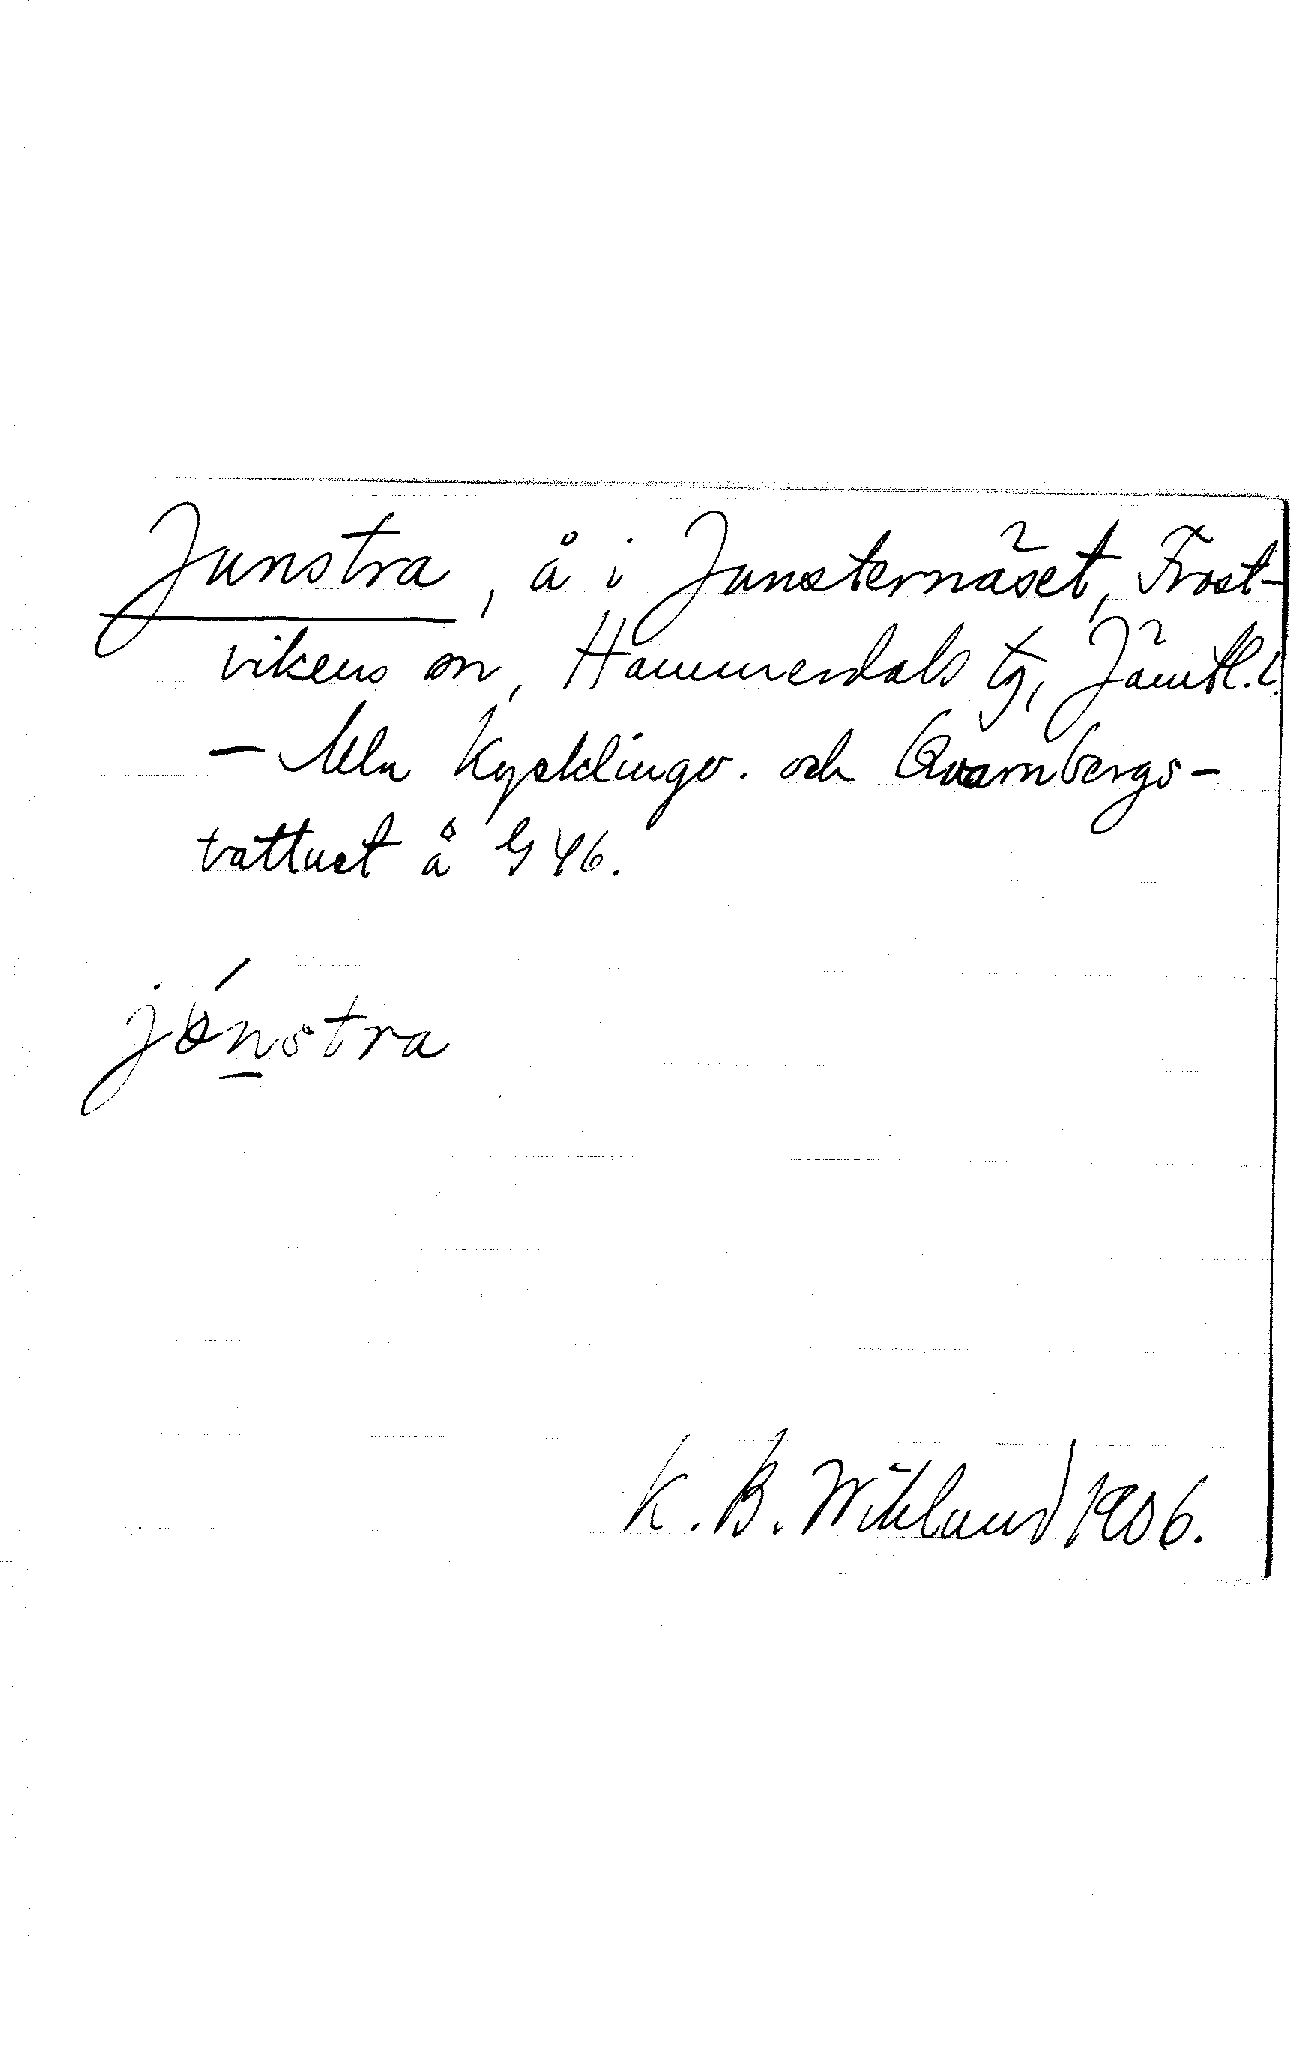 Junstra, å i Junsternäset, Frost-
vikens sn, Hammerdals tg, Jämtl. l.
— Mln Kycklingv. och Qvarnbergs-
vattnet å G 46.
jónstra
K. B. Wiklund 1906.